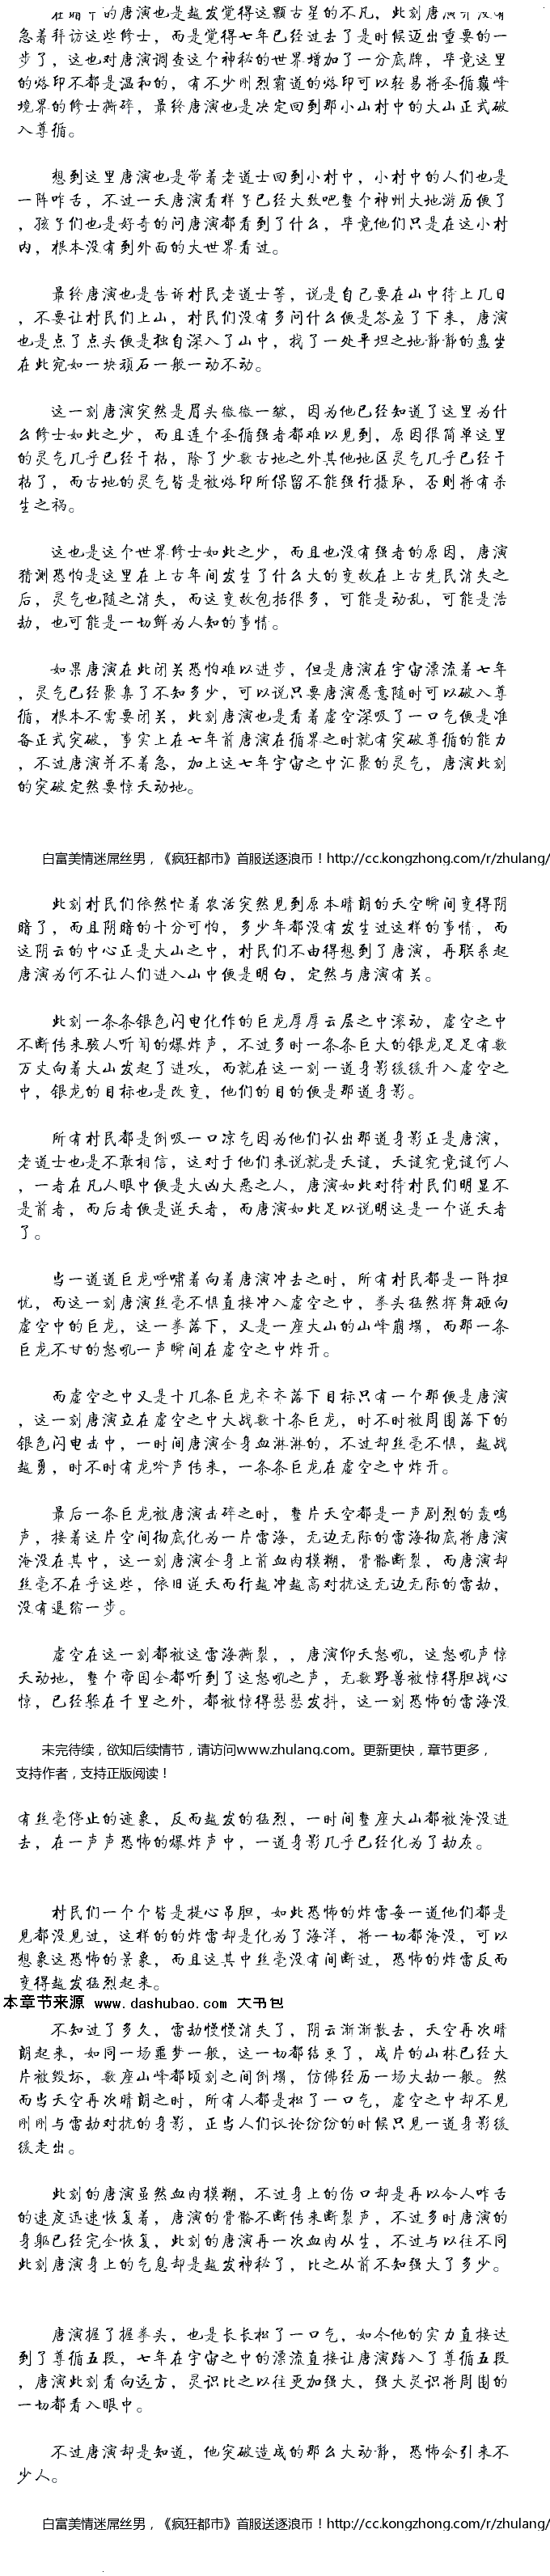 在暗中的唐演也是越发觉得这颗古星的不凡，此刻唐演并没有
急着拜访这些修士，而是觉得七年已经过去了是时候迈出重要的一
步了，这也对唐演调查这个神秘的世界增加了一分底牌，毕竟这里
的烙印不都是温和的，有不少刚烈霸道的烙印可以轻易将圣循巅峰
境界的修士撕碎，最终唐演也是决定回到那小山村中的大山正式破
入尊循。
想到这里唐演也是带着老道士回到小村中，小村中的人们也是
一阵咋舌，不过一天唐演看样子已经大致吧整个神州大地游历便了
，孩子们也是好奇的问唐演都看到了什么，毕竟他们只是在这小村
内，根本没有到外面的大世界看过。
最终唐演也是告诉村民老道士等，说是自己要在山中待上几日
，不要让村民们上山，村民们没有多问什么便是答应了下来，唐演
也是点了点头便是独自深入了山中，找了一处平坦之地静静的盘坐
在此宛如一块顽石一般一动不动。
这一刻唐演突然是眉头微微一皱，因为他已经知道了这里为什
么修士如此之少，而且连个圣循强者都难以见到，原因很简单这里
的灵气几乎已经干枯，除了少数古地之外其他地区灵气几乎已经干
枯了，而古地的灵气皆是被烙印所保留不能强行摄取，否则将有杀
生之祸。
这也是这个世界修士如此之少，而且也没有强者的原因，唐演
猜测恐怕是这里在上古年间发生了什么大的变故在上古先民消失之
后，灵气也随之消失，而这变故包括很多，可能是动乱，可能是浩
劫，也可能是一切鲜为人知的事情。
如果唐演在此闭关恐怕难以进步，但是唐演在宇宙漂流着七年
，灵气已经聚集了不知多少，可以说只要唐演愿意随时可以破入尊
循，根本不需要闭关，此刻唐演也是看着虚空深吸了一口气便是准
备正式突破，事实上在七年前唐演在循界之时就有突破尊循的能力
，不过唐演并不着急，加上这七年宇宙之中汇聚的灵气，唐演此刻
的突破定然要惊天动地。
白富美情迷屌丝男，《疯狂都市》首服送逐浪币！http://cc.kongzhong.com/r/zhulang/
此刻村民们依然忙着农活突然见到原本晴朗的天空瞬间变得阴
暗了，而且阴暗的十分可怕，多少年都没有发生过这样的事情，而
这阴云的中心正是大山之中，村民们不由得想到了唐演，再联系起
唐演为何不让人们进入山中便是明白，定然与唐演有关。
此刻一条条银色闪电化作的巨龙厚厚云层之中滚动，虚空之中
不断传来骇人听闻的爆炸声，不过多时一条条巨大的银龙足足有数
万丈向着大山发起了进攻，而就在这一刻一道身影缓缓升入虚空之
中，银龙的目标也是改变，他们的目的便是那道身影。
所有村民都是倒吸一口凉气因为他们认出那道身影正是唐演，
老道士也是不敢相信，这对于他们来说就是天谴，天谴究竟谴何人
，一者在凡人眼中便是大凶大恶之人，唐演如此对待村民们明显不
是前者，而后者便是逆天者，而唐演如此足以说明这是一个逆天者
了。
当一道道巨龙呼啸着向着唐演冲去之时，所有村民都是一阵担
忧，而这一刻唐演丝毫不惧直接冲入虚空之中，拳头猛然挥舞砸向
虚空中的巨龙，这一拳落下，又是一座大山的山峰崩塌，而那一条
巨龙不甘的怒吼一声瞬间在虚空之中炸开。
而虚空之中又是十几条巨龙齐齐落下目标只有一个那便是唐演
，这一刻唐演立在虚空之中大战数十条巨龙，时不时被周围落下的
银色闪电击中，一时间唐演全身血淋淋的，不过却丝毫不惧，越战
越勇，时不时有龙吟声传来，一条条巨龙在虚空之中炸开。
最后一条巨龙被唐演击碎之时，整片天空都是一声剧烈的轰鸣
声，接着这片空间彻底化为一片雷海，无边无际的雷海彻底将唐演
淹没在其中，这一刻唐演全身上前血肉模糊，骨骼断裂，而唐演却
丝毫不在乎这些，依旧逆天而行越冲越高对抗这无边无际的雷劫，
没有退缩一步。
虚空在这一刻都被这雷海撕裂，，唐演仰天怒吼，这怒吼声惊
天动地，整个帝国全都听到了这怒吼之声，无数野兽被惊得胆战心
惊，已经躲在千里之外，都被惊得瑟瑟发抖，这一刻恐怖的雷海没
未完待续，欲知后续情节，请访问www.zhulang.com。更新更快，章节更多，
支持作者，支持正版阅读！
有丝毫停止的迹象，反而越发的猛烈，一时间整座大山都被淹没进
去，在一声声恐怖的爆炸声中，一道身影几乎已经化为了劫灰。
村民们一个个皆是提心吊胆，如此恐怖的炸雷每一道他们都是
见都没见过，这样的的炸雷却是化为了海洋，将一切都淹没，可以
想象这恐怖的景象，而且这其中丝毫没有间断过，恐怖的炸雷反而
变得越发猛烈起来。
本章节来源 www.dashubao.com 大书包
不知过了多久，雷劫慢慢消失了，阴云渐渐散去，天空再次晴
朗起来，如同一场噩梦一般，这一切都结束了，成片的山林已经大
片被毁坏，数座山峰都顷刻之间倒塌，仿佛经历一场大劫一般。然
而当天空再次晴朗之时，所有人都是松了一口气，虚空之中却不见
刚刚与雷劫对抗的身影，正当人们议论纷纷的时候只见一道身影缓
缓走出。
此刻的唐演虽然血肉模糊，不过身上的伤口却是再以令人咋舌
的速度迅速恢复着，唐演的骨骼不断传来断裂声，不过多时唐演的
身躯已经完全恢复，此刻的唐演再一次血肉从生，不过与以往不同
此刻唐演身上的气息却是越发神秘了，比之从前不知强大了多少。
唐演握了握拳头，也是长长松了一口气，如今他的实力直接达
到了尊循五段，七年在宇宙之中的漂流直接让唐演踏入了尊循五段
，唐演此刻看向远方，灵识比之以往更加强大，强大灵识将周围的
一切都看入眼中。
不过唐演却是知道，他突破造成的那么大动静，恐怖会引来不
少人。
白富美情迷屌丝男，《疯狂都市》首服送逐浪币！http://cc.kongzhong.com/r/zhulang/